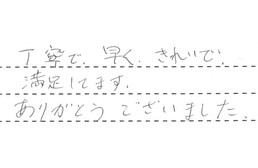 丁寧で、早く、きれいで、
満足してます。
ありがとう ございました。